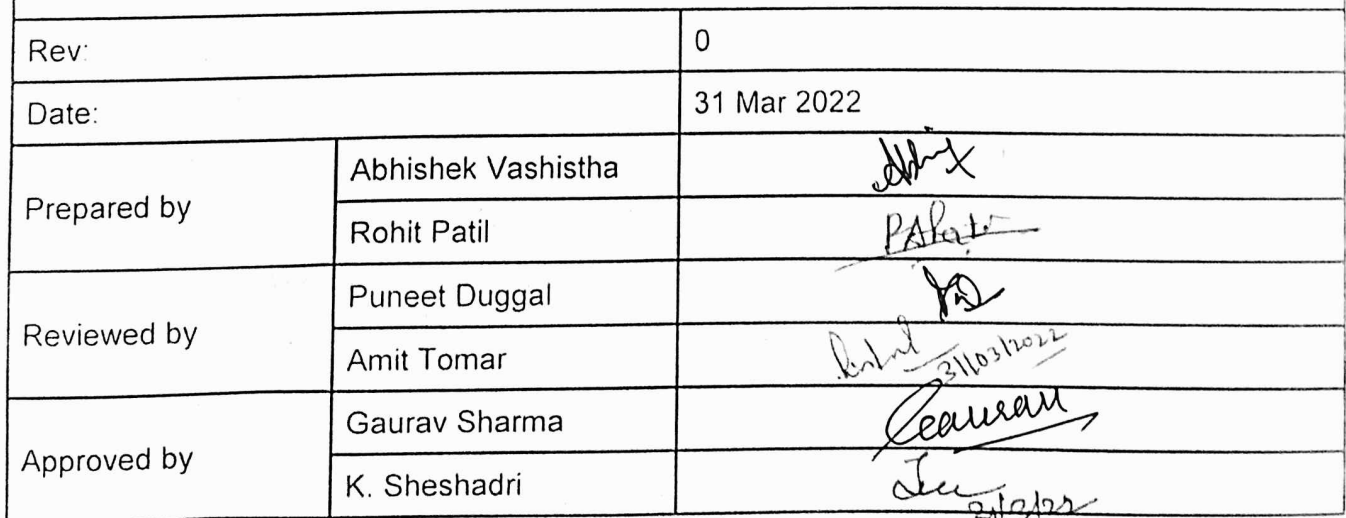 Rev: 0
Date: 31 Mar 2022
Prepared by
Abhishek Vashistha
Rohit Patil
Reviewed by
Puneet Duggal
Amit Tomar 31/03/2022
Approved by
Gaurav Sharma Gaurav
K. Sheshadri